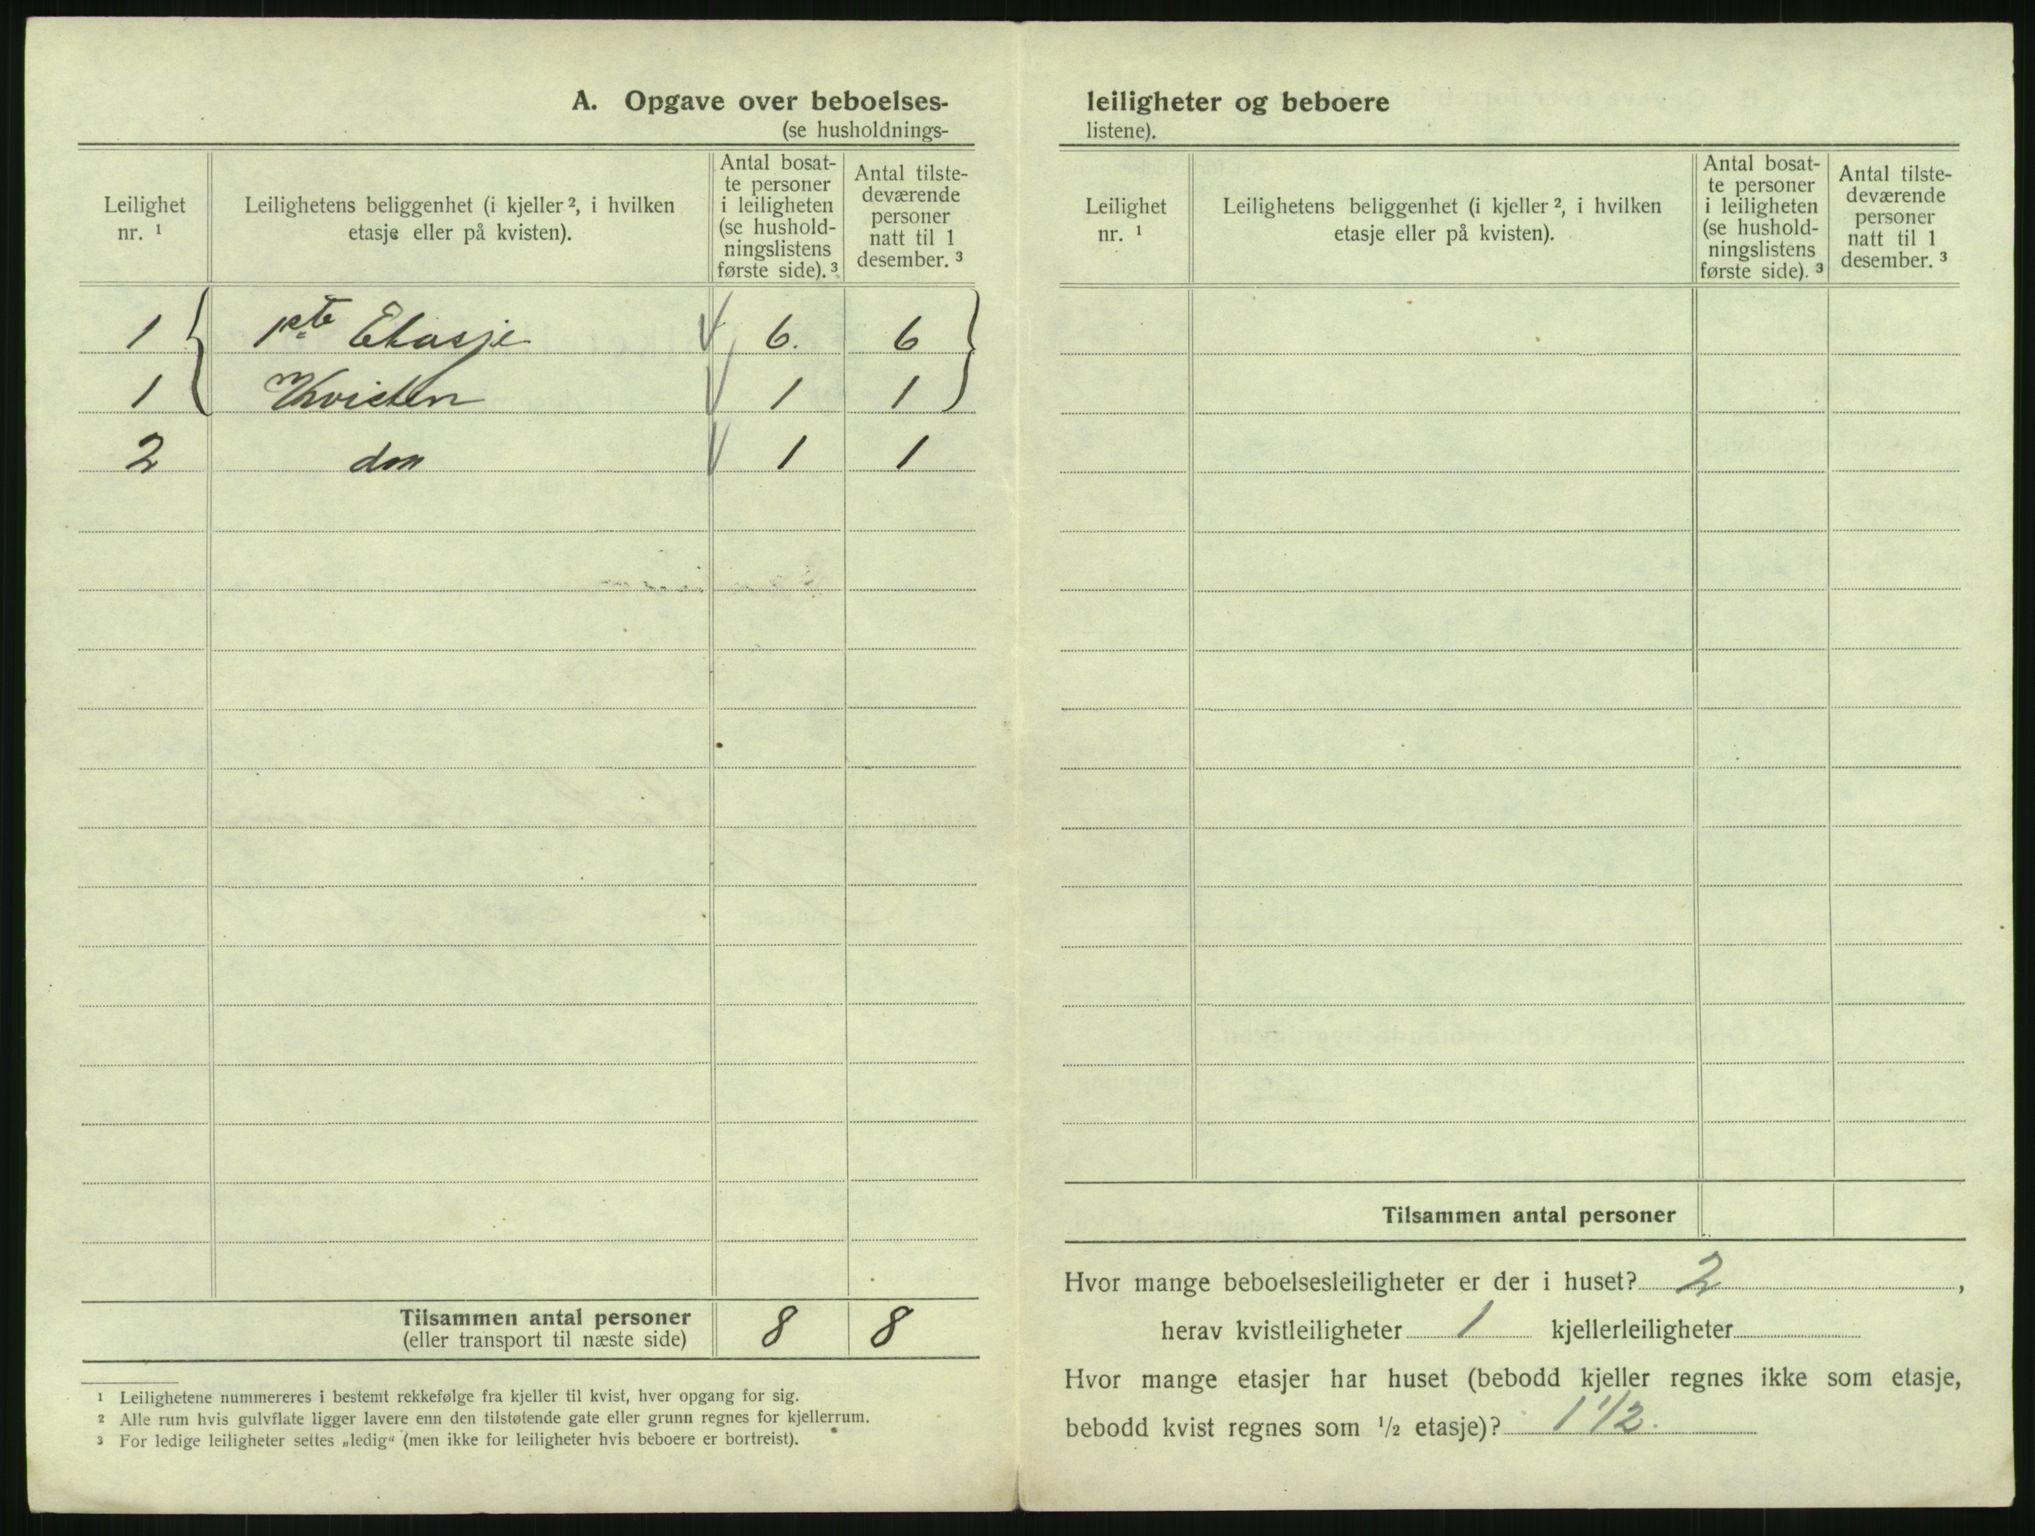 A. Opgave over beboelses-
(se husholdnings-
Leilighet nr. ¹
Leilighetens beliggenhet (i kjeller ², i hvilken etasje eller på kvisten).
Antal bosat-
te personer
i leiligheten
(se hushold-
ningslistens
første side). ³
Antal tilste-
deværende
personer
natt til 1
desember. ³
1 1ste Etasje 6. 6
1 Kvisten 1 1
2 do 1 1
Tilsammen antal personer 8 8
(eller transport til næste side)
¹ Leilighetene nummereres i bestemt rekkefølge fra kjeller til kvist, hver opgang for sig.
² Alle rum hvis gulvflate ligger lavere enn den tilstøtende gate eller grunn regnes for kjellerrum.
³ For ledige leiligheter settes „ledig“ (men ikke for leiligheter hvis beboere er bortreist).
leiligheter og beboere
listene).
Leilighet nr. ¹
Leilighetens beliggenhet (i kjeller ², i hvilken etasje eller på kvisten).
Antal bosat-
te personer
i leiligheten
(se hushold-
ningslistens
første side). ³
Antal tilste-
deværende
personer
natt til 1
desember. ³
Tilsammen antal personer
Hvor mange beboelsesleiligheter er der i huset? 2 ,
herav kvistleiligheter 1 kjellerleiligheter
Hvor mange etasjer har huset (bebodd kjeller regnes ikke som etasje,
bebodd kvist regnes som ½ etasje)? 1 1/2.